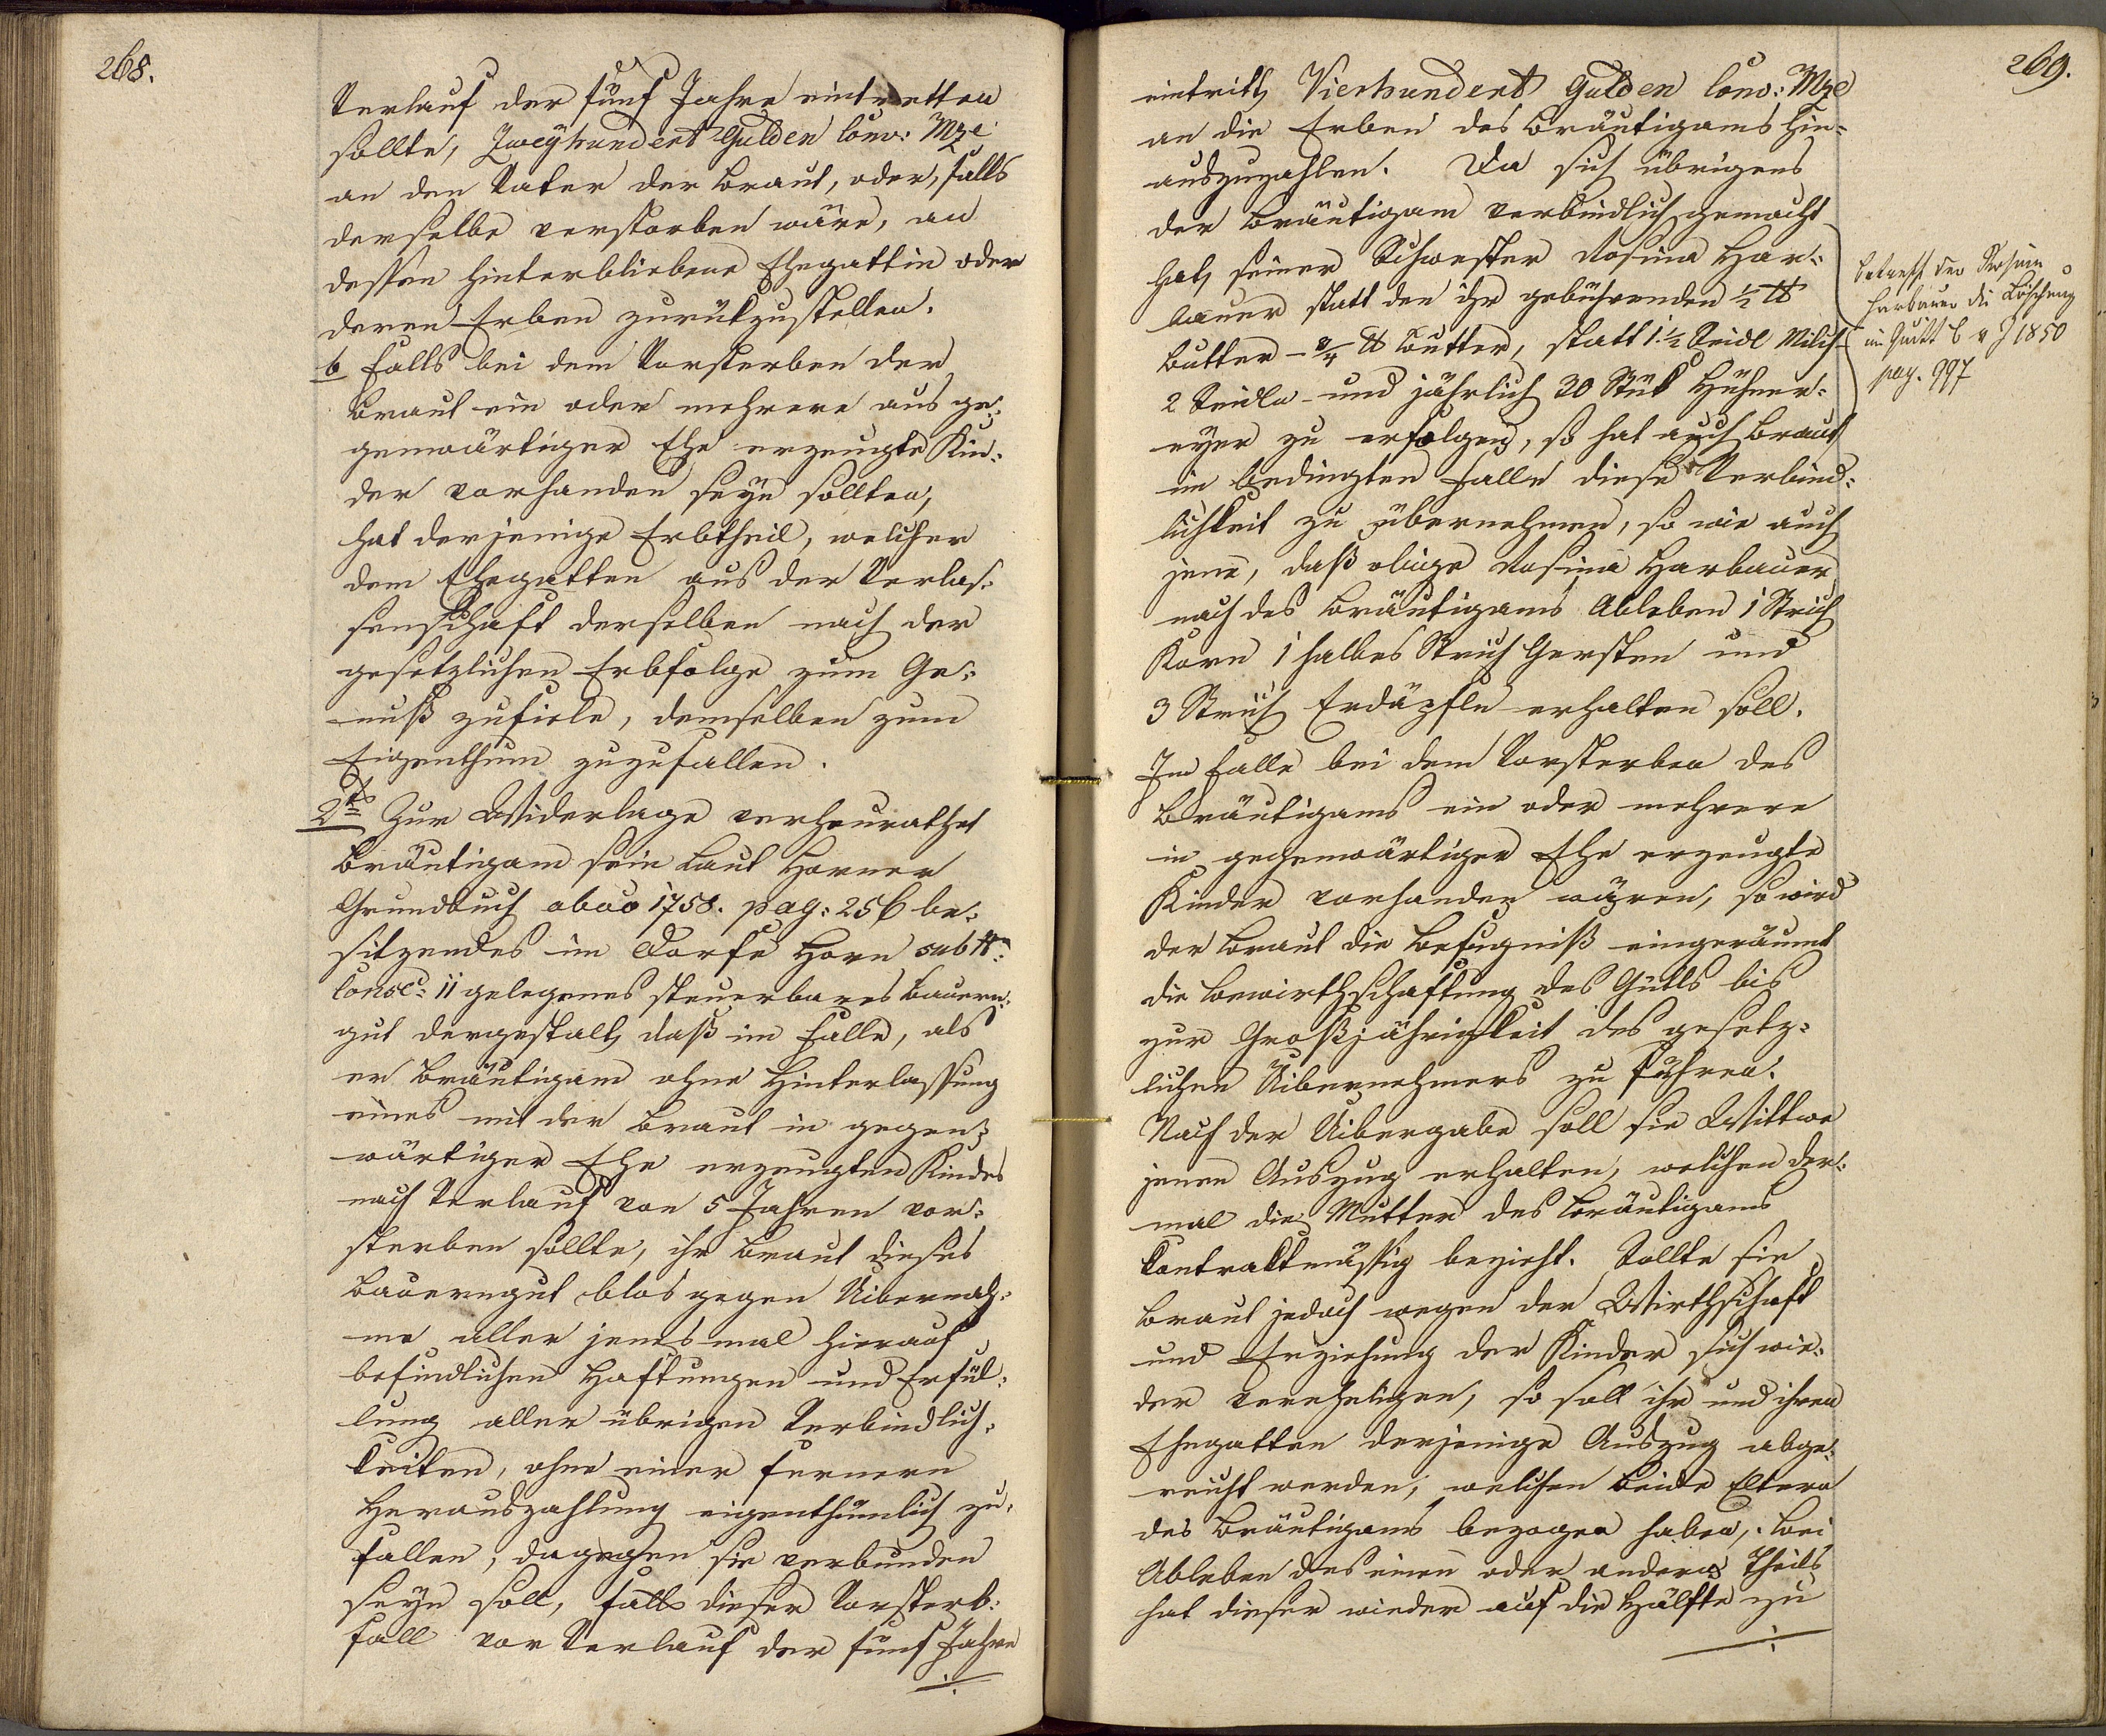 268.
Verlauf der fünf Jahre eintretten
sollte, Zweyhundert Gulden Conv: Mze
an den Vater der Braut, oder, falls
derselbe verstorben wäre, an
dessen hinterbliebene Ehegattin oder
deren Erben zurükzustellen.
b Falls bei dem Vorsterben der
Braut ein oder mehrere aus ge-
genwärtiger Ehe erzeugte Kin-
der vorhanden seyn sollten,
hat derjenige Erbtheil, welcher
dem Ehegatten aus der Verlas-
senschaft derselben nach der
gesetzlichen Erbfolge zum Ge-
nuß zufiele, demselben zum
Eigenthum zuzufallen.
2tns Zur Widerlage verheurathet
Bräutigam sein laut Horner
Grundbuch abao 1758. pag: 256 be-
sitzendes im Dorfe Horn sub N:
Consc: 11 gelegenes steuerbares Bauern-
gut dergestalt, daß im Falle, als
er Bräutigam ohne Hinterlassung
eines mit der Braut in gegen-
wärtiger Ehe erzeugten Kindes
nach Verlauf von 5 Jahren vor-
sterben sollte, ihr Braut dieses
Bauerngut blos gegen Uibernah-
me aller jenesmal hierauf
befindlichen Haftungen und Erfül-
lung aller übrigen Verbindlich-
keiten, ohne einer fernern
Herauszahlung eigenthümlich zu-
fallen, dagegen sie verbunden
seyn soll, falls dieser Vorsterb-
fall vor Verlauf der fünf Jahre
./.
269.
eintritt, Vierhundert Gulden Conv: Mze
an die Erben des Bräutigams hin-
auszuzahlen. Da sich übrigens
der Bräutigam verbindlich gemacht
hat, seiner Schwester Rosina Har-
bauer statt den ihr gebührenden ½ ℔
Butter - ¾ ℔ Butter, statt 1 ½ Seidl Milch -
2 Seidln - und jährlich 30 Stük Hühner-
eyer zu erfolgen, so hat auch Braut
im bedingten Falle diese Verbind-
lichkeit zu übernehmen, so wie auch
jene, daß obige Rosina Harbauer
nach des Bräutigams Ableben 1 Strich
Korn 1 halbes Strich Gersten und
3 Strich Erdäpfln erhalten soll.
Im Falle bei dem Vorsterben des
Bräutigams ein oder mehrere
in gegenwärtiger Ehe erzeugte
Kinder vorhanden wären, so wird
der Braut die Befugniß eingeräumt
die Bewirthschaftung des Gutts bis
zur Großjährigkeit des gesetz-
lichen Uibernehmers zu führen.
Nach der Uibergabe soll sie Wittwe
jenen Auszug erhalten, welchen der-
mal die Mutter des Bräutigams
kontraktmässig bezieht. Sollte sie
Braut jedoch wegen der Wirthschaft
und Erziehung der Kinder sich wie-
der verehligen, so soll ihr und ihren
Ehegatten derjenige Auszug abge-
reicht werden, welchen beide Eltern
des Bräutigams bezogen haben, bei
Ableben des einen oder andern Theils
hat dieser wieder auf die Hälfte zu
./.
betrefft der Rosina
Harbauer die Löschung
im Quitt B v J 1850
pag. 997